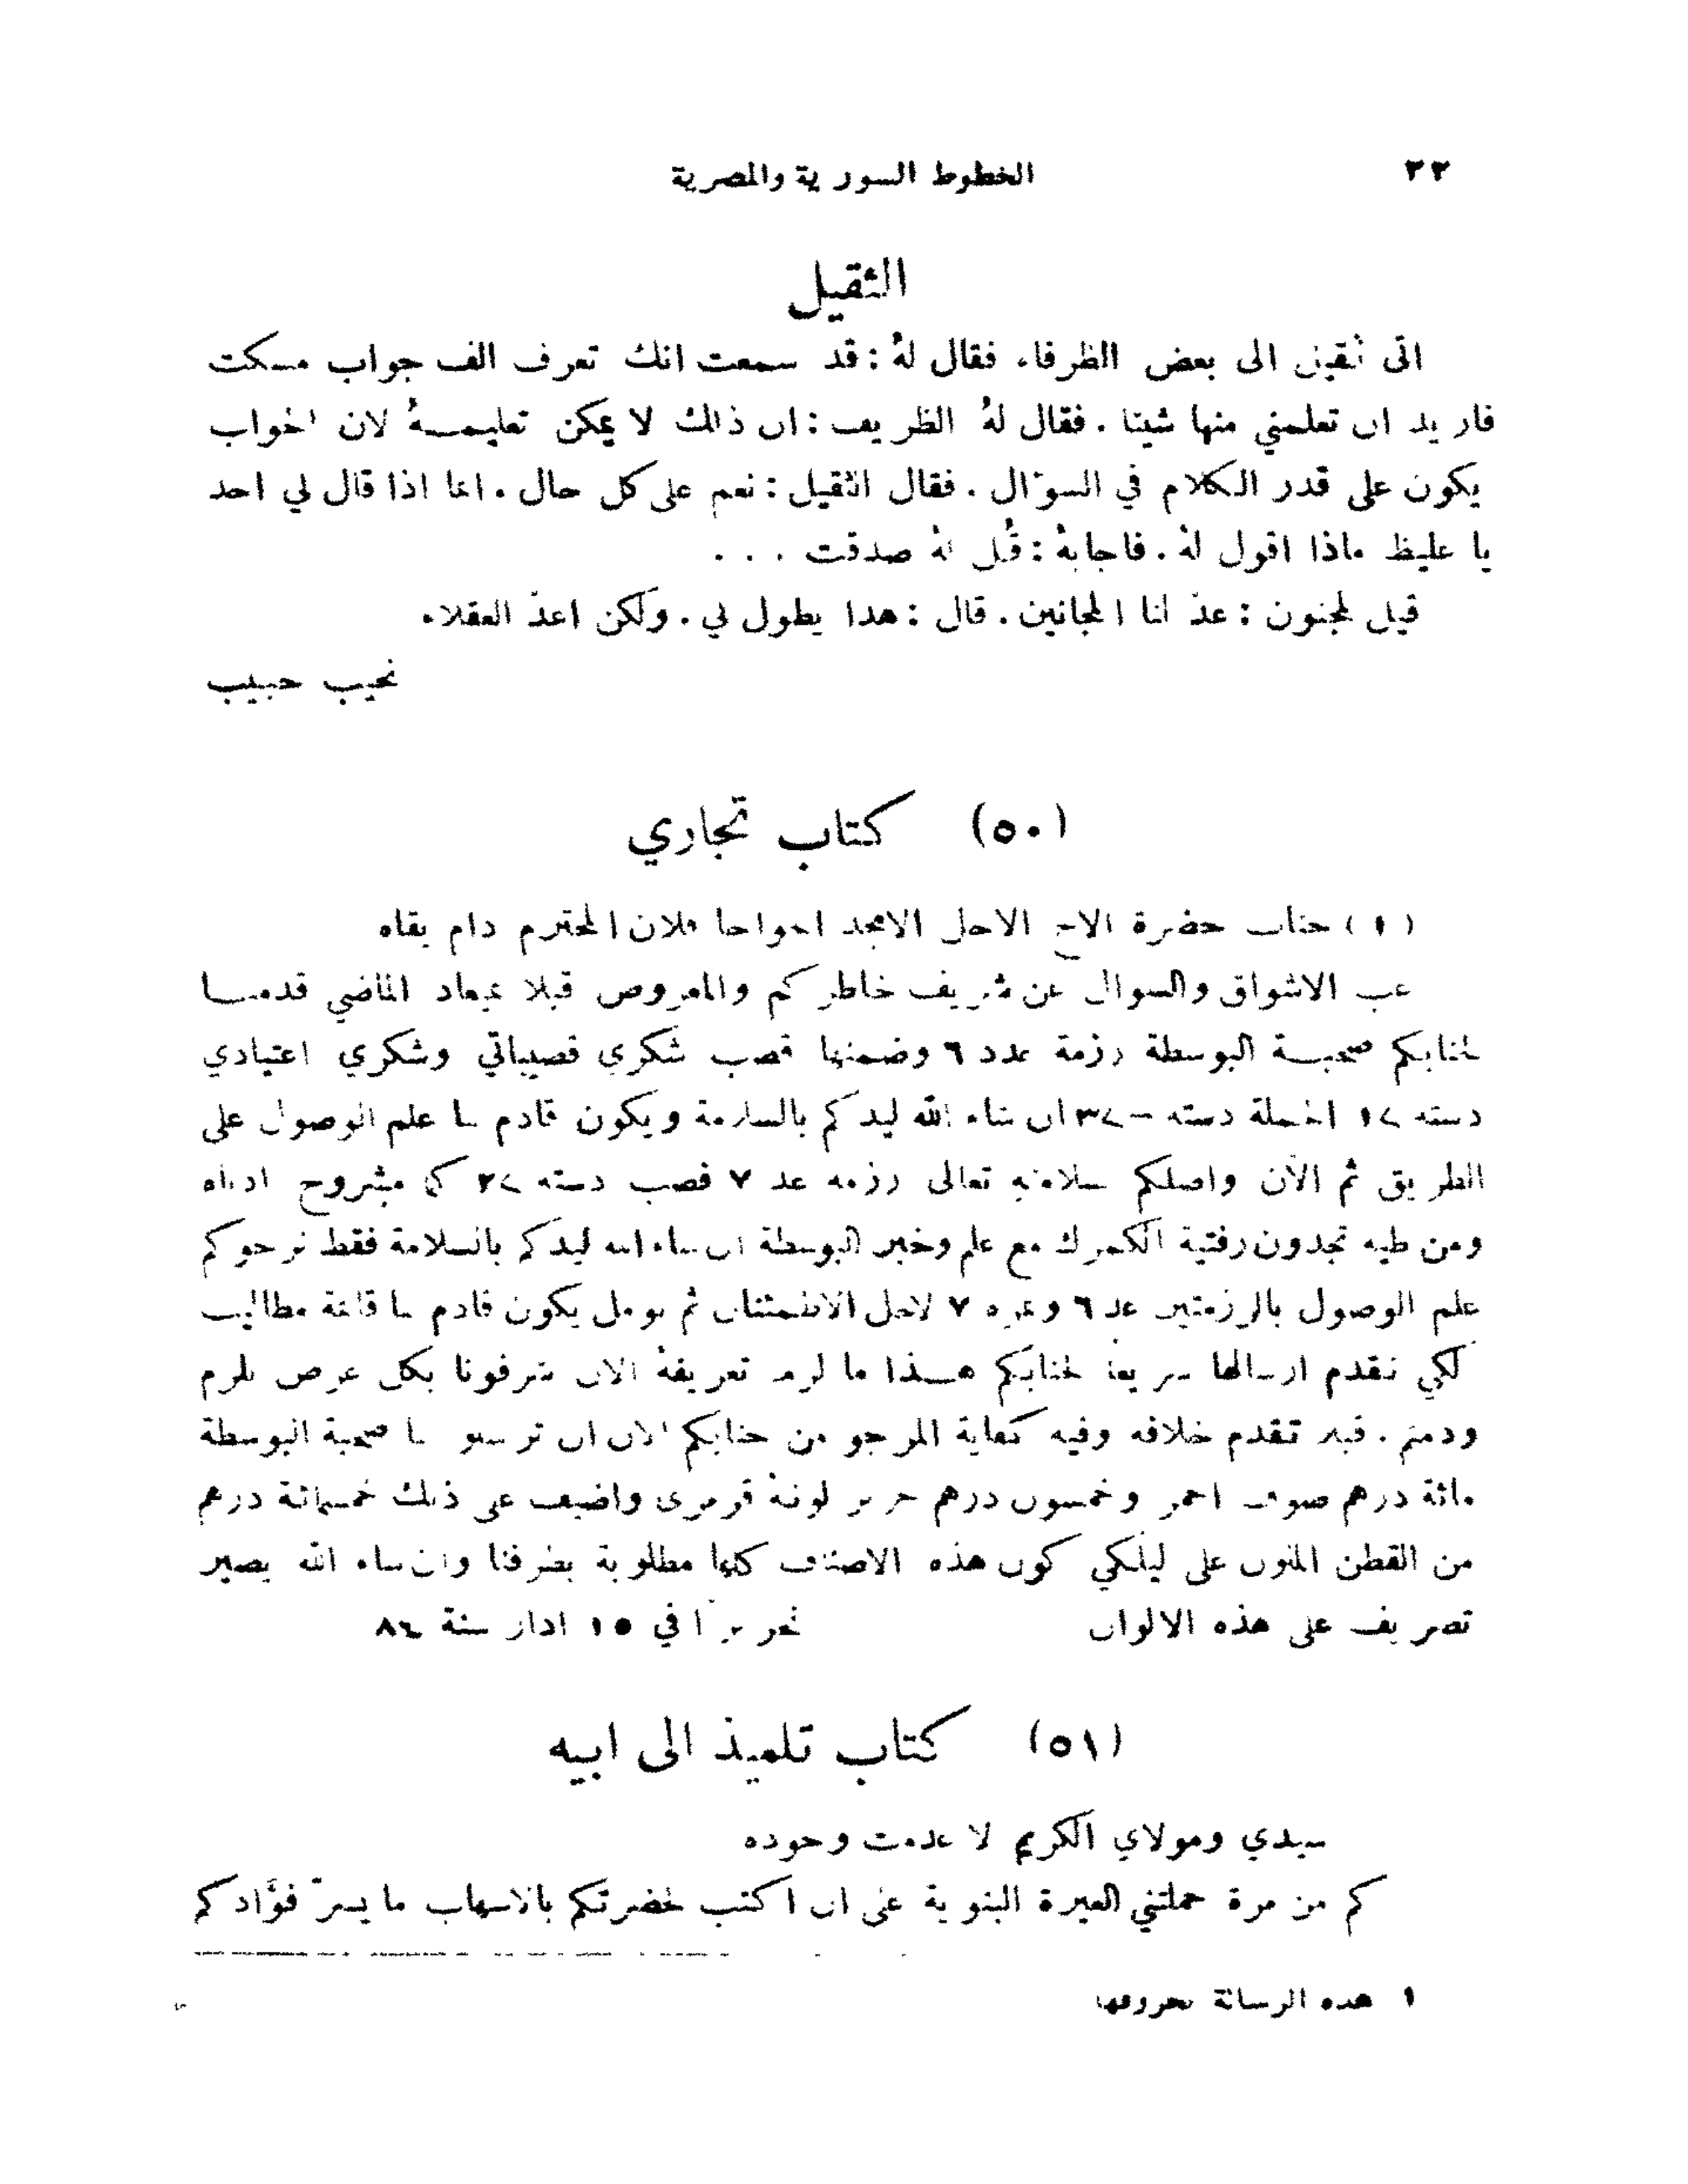 ٣٣ الخطوط السورية والمصرية
الثقيل
اتى ثقيل الى بعض الظرفاء فقال لهُ : قد سمعت انك تعرف الف جواب مسكت
فاريد ان تعلمني منها شيئا . فقال لهُ الظريف : ان ذلك لا يمكن تعليمــهُ لان الجواب
يكون على قدر الكلام في السوَّال . فقال الثقيل : نعم على كل حال . انما اذا قال لي احد
يا غليظ ماذا اقول لهُ . فاجابهُ : قُل لهُ صدقت . . .
قيل لمجنون : عدّ لنا المجانين . قال : هذا يطول لي . ولكن اعدّ العقلاء
نجيب حبيب
(٥٠) كتاب تجاري
(١) جناب حضرة الاخ الاجل الامجد الخواجا فلان المحترم دام بقاه
غب الاشواق والسوال عن شريف خاطركم والمعروض قبلا بميعاد الماضي قدمنــا
لجنابكم صحبــة البوسطة رزمة عدد ٦ وضمنها قصب شكري قصيباتي وشكري اعتيادي
دسته ١٢ الجملة دسته ان شاء الله ليدكم بالسلامة ويكون قادم لنا علم الوصول على
الطريق ثم الآن واصلكم سلامته تعالى رزمه عد ٧ قصب دسته كما مشروح ادناه
ومن طيه تجدون رفتية الكمرك مع علم وخبر البوسطة ان شاء الله ليدكم بالسلامة فقط نرجوكم
علم الوصول بالرزمتين عد ٦ ونمره ٧ لاجل الاطمئنان ثم نومل يكون قادم لنا قائمة مطاليب
لكي نقدم ارسالها سريعاً لجنابكم هــذا ما لزم تعريفهُ الان شرفونا بكل غرض يلزم
ودمتم . قبله تقدم خلافه وفيه كفاية المرجو من جنابكم الان ان ترسلو لنا صحبة البوسطة
مائة درهم صوف احمر وخمسون درهم حرير لونهُ قرمزي واضيف على ذلك خمسمائة درهم
من القطن الملون على ليلكي كون هذه الاصناف كلها مطلوبة بطرفنا وان شاء الله يصير
تصريف على هذه الالوان تحريرًا في ١٥ اذار سنة ٨٤
(٥١) كتاب تلميذ الى ابيه
سيدي ومولاي الكريم لا عدمت وجوده
كم من مرة حملتني الغيرة البنوية على ان اكتب لحضرتكم بالاسهاب ما يسرّ فوَّادكم
١ هذه الرسالة بحروفها